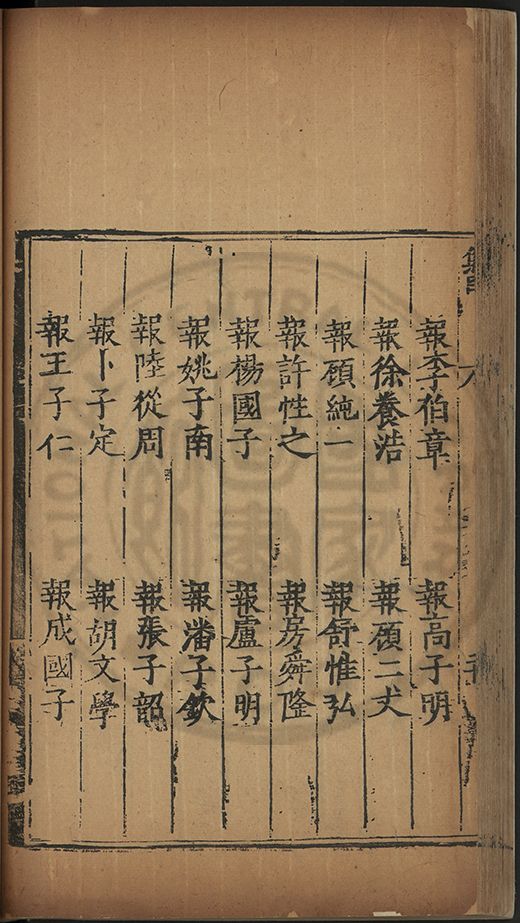 報李伯章 報高子明
報徐養浩 報顧二丈
報顧純一 報舒惟弘
報許性之 報房舜隆
報楊國子 報盧子明
報姚子南 報潘子欽
報陸從周 報張子韶
報卜子定 報胡文學
報王子仁 報成國子